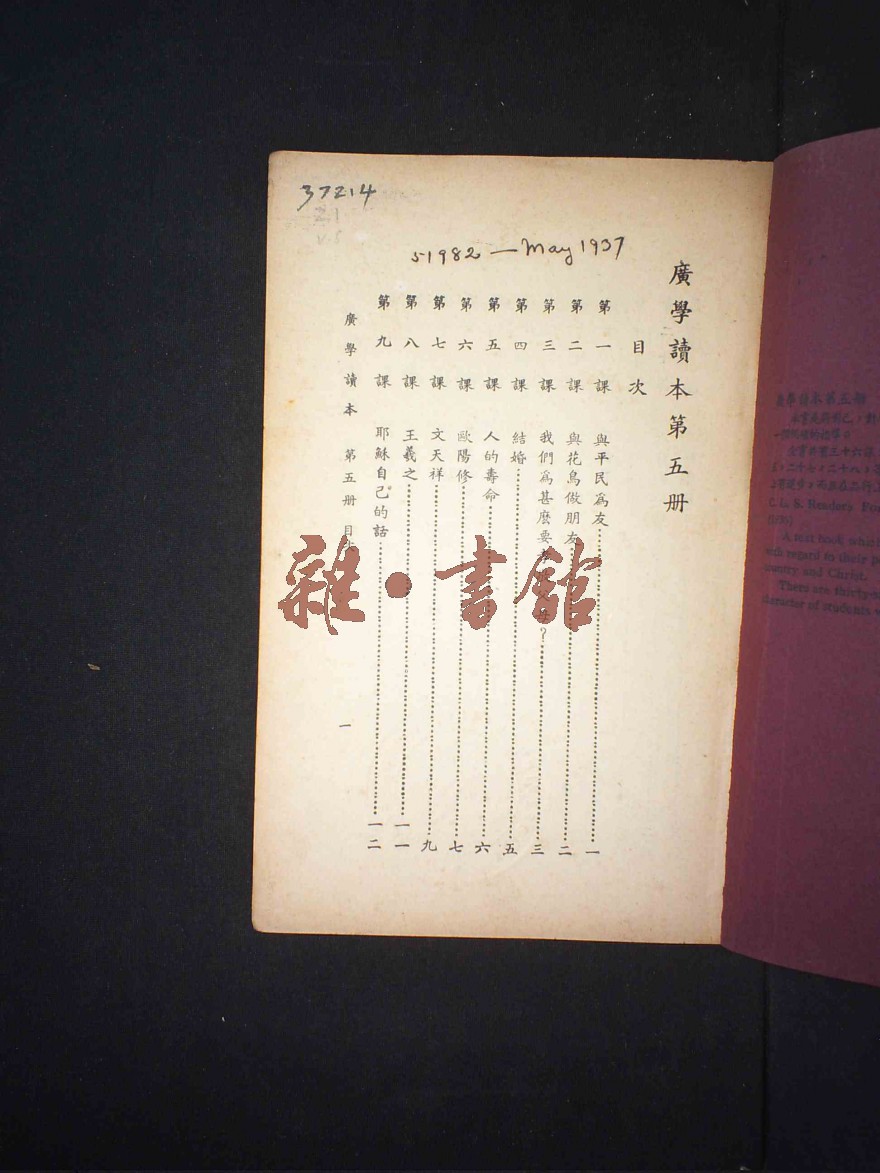 37214
51982 — May 1937
廣學讀本第五册
目次
第一課 與平民爲友 一
第二課 與花鳥做朋友 二
第三課 我們爲甚麼要 ？ 三
第四課 結婚 五
第五課 人的壽命 六
第六課 歐陽修 七
第七課 文天祥 九
第八課 王羲之 一一
第九課 耶穌自己的話 一二
廣學讀本 第五册 目 一
雜·書館
廣學讀本第五册
全書共三十六課
C. L. S. Reader's
A text book which
with regard to their
country and Christ.
There are thirty-
character of students